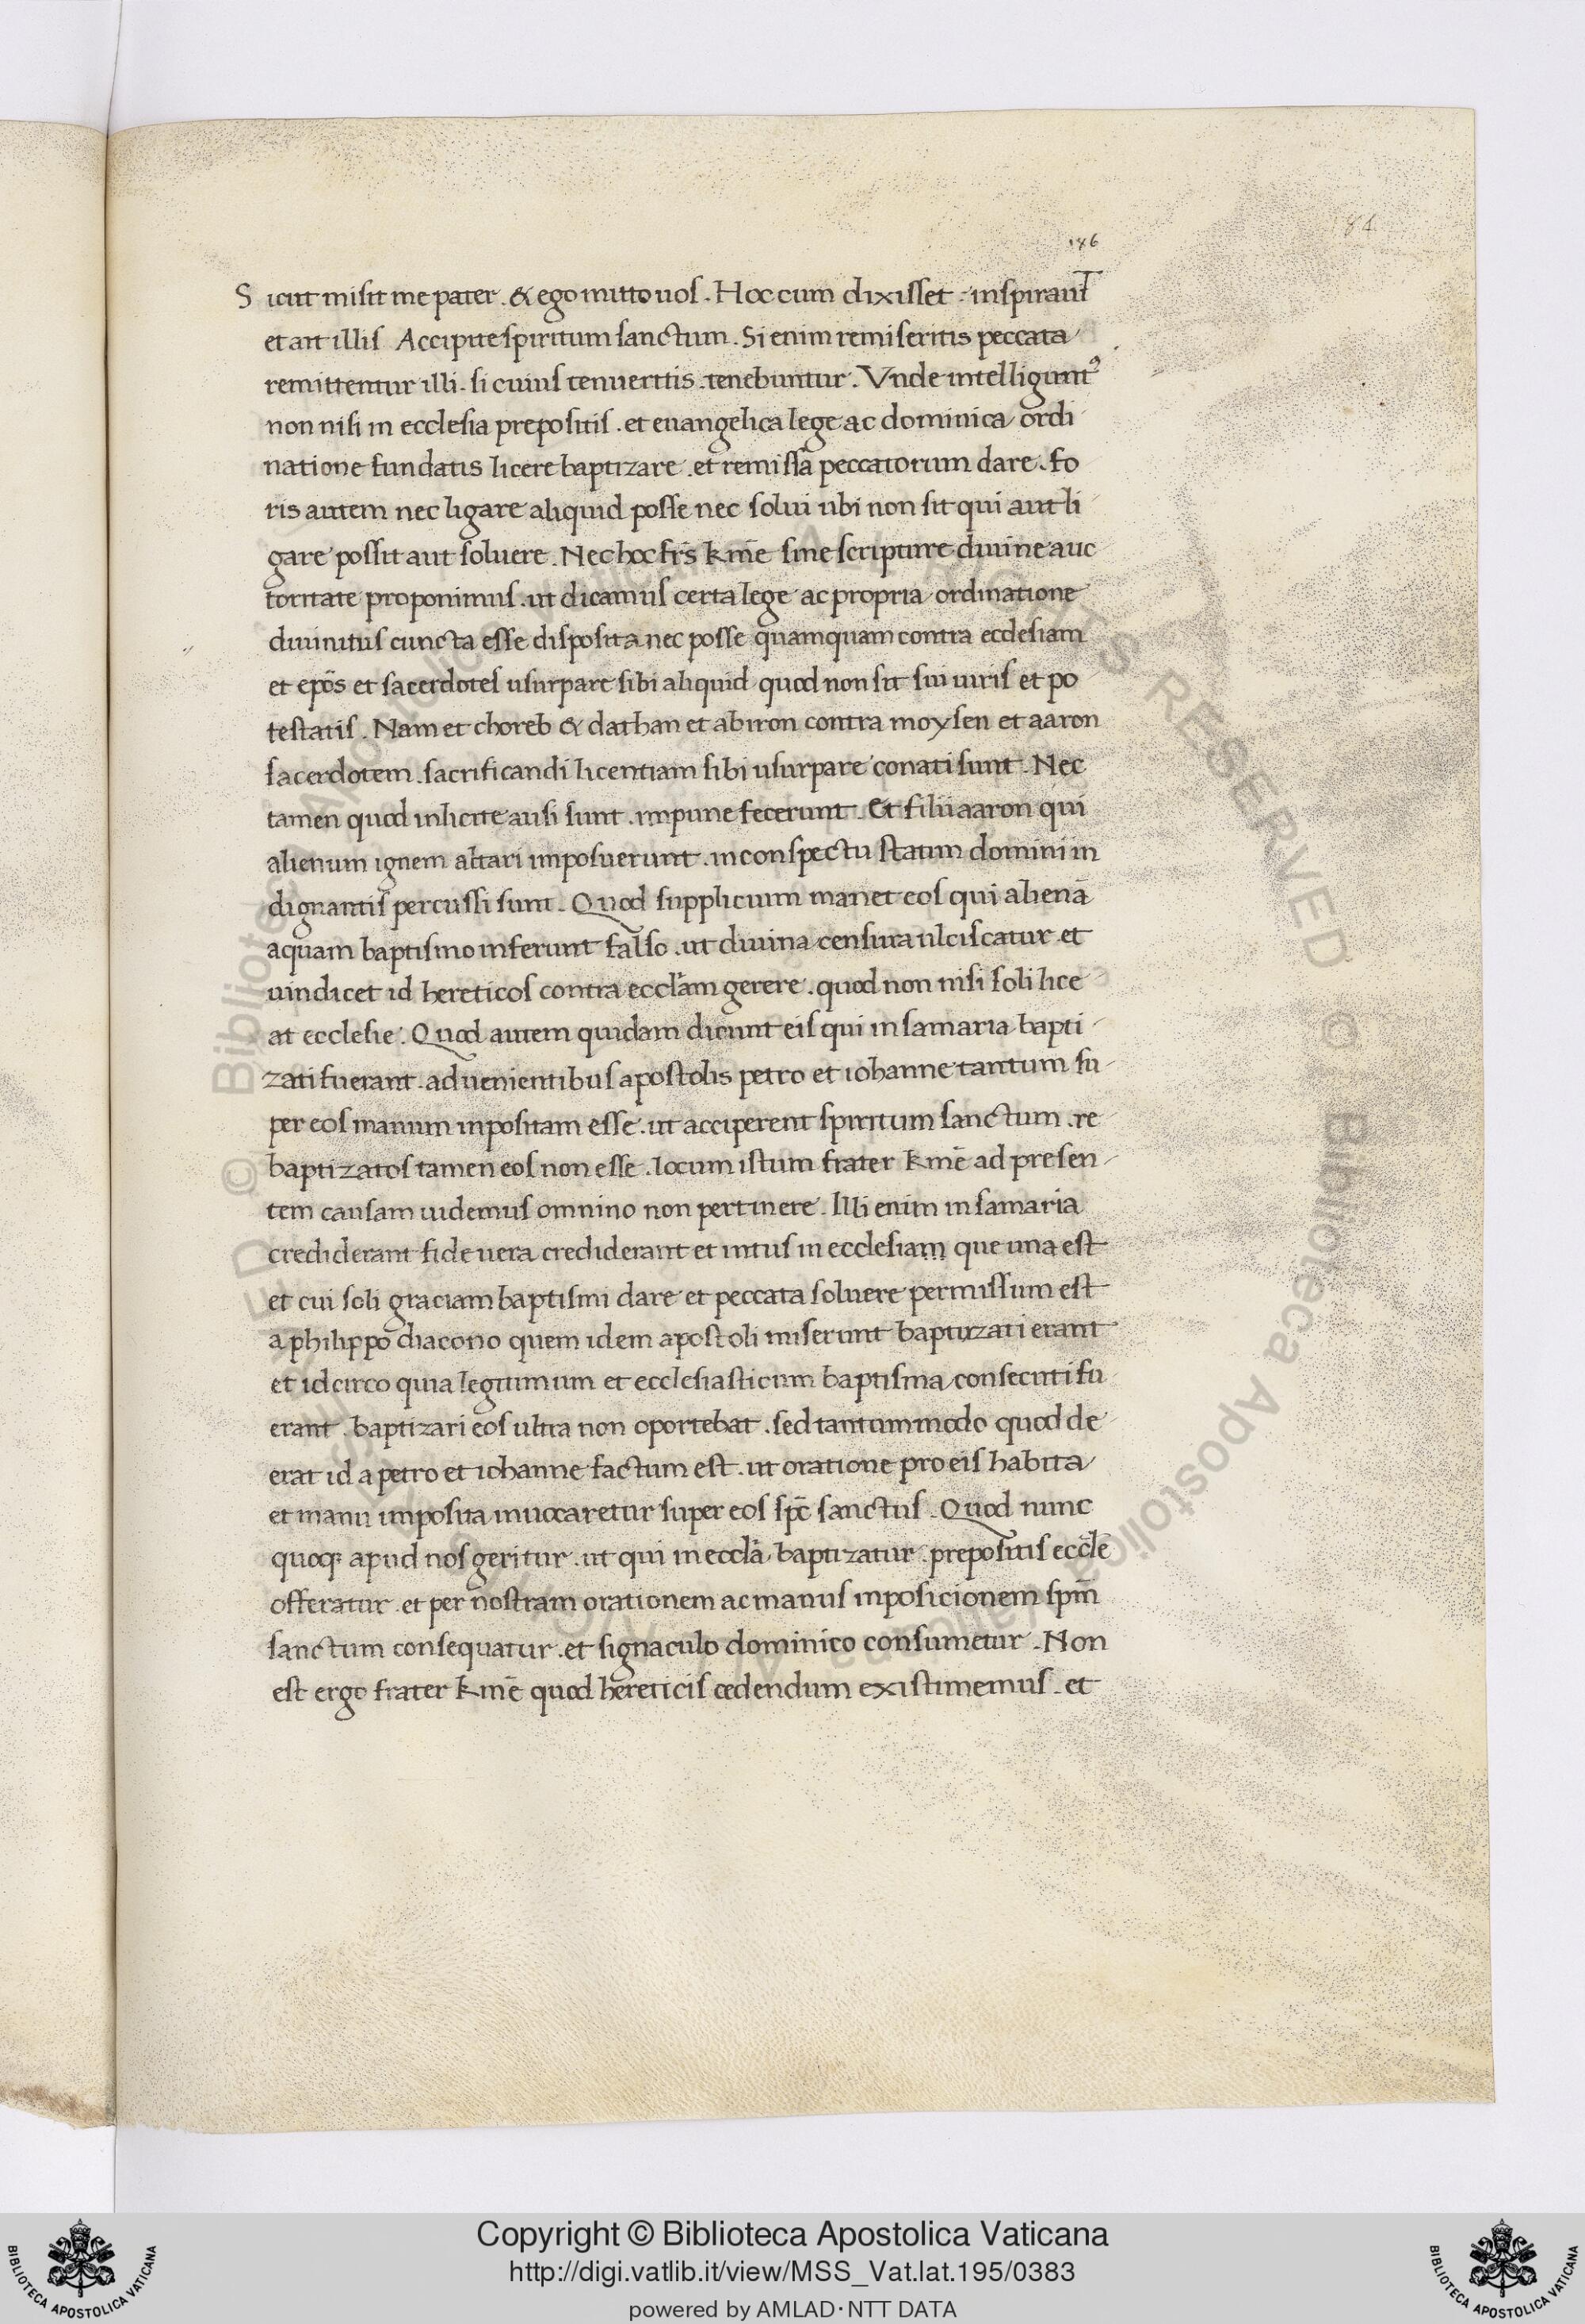 184
186
Sicut misit me pater . & ego mitto uos . Hoc cum dixisset . inspirauit
et ait illis Accipite spiritum sanctum . Si enim remiseritis peccata
remittentur illi . si cuius tenueritis . tenebuntur . Vnde intelligunt᷒
non nisi in ecclesia prepositis . et euangelica lege ac dominica ordi
natione fundatis licere baptizare . et remissā peccatorum dare . fo
ris autem nec ligare aliquid posse nec solui ubi non sit qui aut li
gare possit aut soluere . Nec hoc fr̄s km̄e sine scripture diuine auc
toritate proponimus . ut dicamus certa lege ac propria ordinatione
diuinitus cuncta esse disposita nec posse quamquam contra ecclesiam
et ep̄os et sacerdotes usurpare sibi aliquid quod non sit sui iuris et po
testatis . Nam et choreb & dathan et abiron contra moysen et aaron
sacerdotem . sacrificandi licentiam sibi usurpare conati sunt . Nec
tamen quod inlicite ausi sunt . impune fecerunt . Et filii aaron qui
alienum ignem altari imposuerunt . in conspectu statim domini in
dignantis percussi sunt . Quod supplicium manet eos qui alienā
aquam baptismo inferunt falso . ut diuina censura ulciscatur et
uindicet id hereticos contra eccl̄am gerere . quod non nisi soli lice
at ecclesie . Quod autem quidam dicunt eis qui in samaria bapti
zati fuerant . aduenientibus apostolis petro et iohanne tantum su
per eos manum inpositam esse . ut acciperent spiritum sanctum . re
baptizatos tamen eos non esse . locum istum frater km̄e ad presen
tem causam uidemus omnino non pertinere . Illi enim in samaria
crediderant fide uera crediderant et intus in ecclesiam que una est
et cui soli graciam baptismi dare et peccata soluere permissum est
a philippo diacono quem idem apostoli miserunt baptizati erant
et idcirco quia legitimum et ecclesiasticum baptisma consecuti fu
erant . baptizari eos ultra non oportebat . sed tantummodo quod de
erat id a petro et iohanne factum est . ut oratione pro eis habita
et manu imposita inuocaretur super eos sp̄c sanctus . Quod nunc
quoq; apud nos geritur . ut qui in eccl̄a baptizatur . prepositis eccl̄e
offeratur . et per nostram orationem ac manus inposicionem sp̄m
sanctum consequatur . et signaculo dominico consumetur . Non
est ergo frater km̄e quod hereticis cedendum existimemus . et
Copyright © Biblioteca Apostolica Vaticana
http://digi.vatlib.it/view/MSS_Vat.lat.195/0383
powered by AMLAD·NTT DATA
BIBLIOTECA APOSTOLICA VATICANA
BIBLIOTECA APOSTOLICA VATICANA